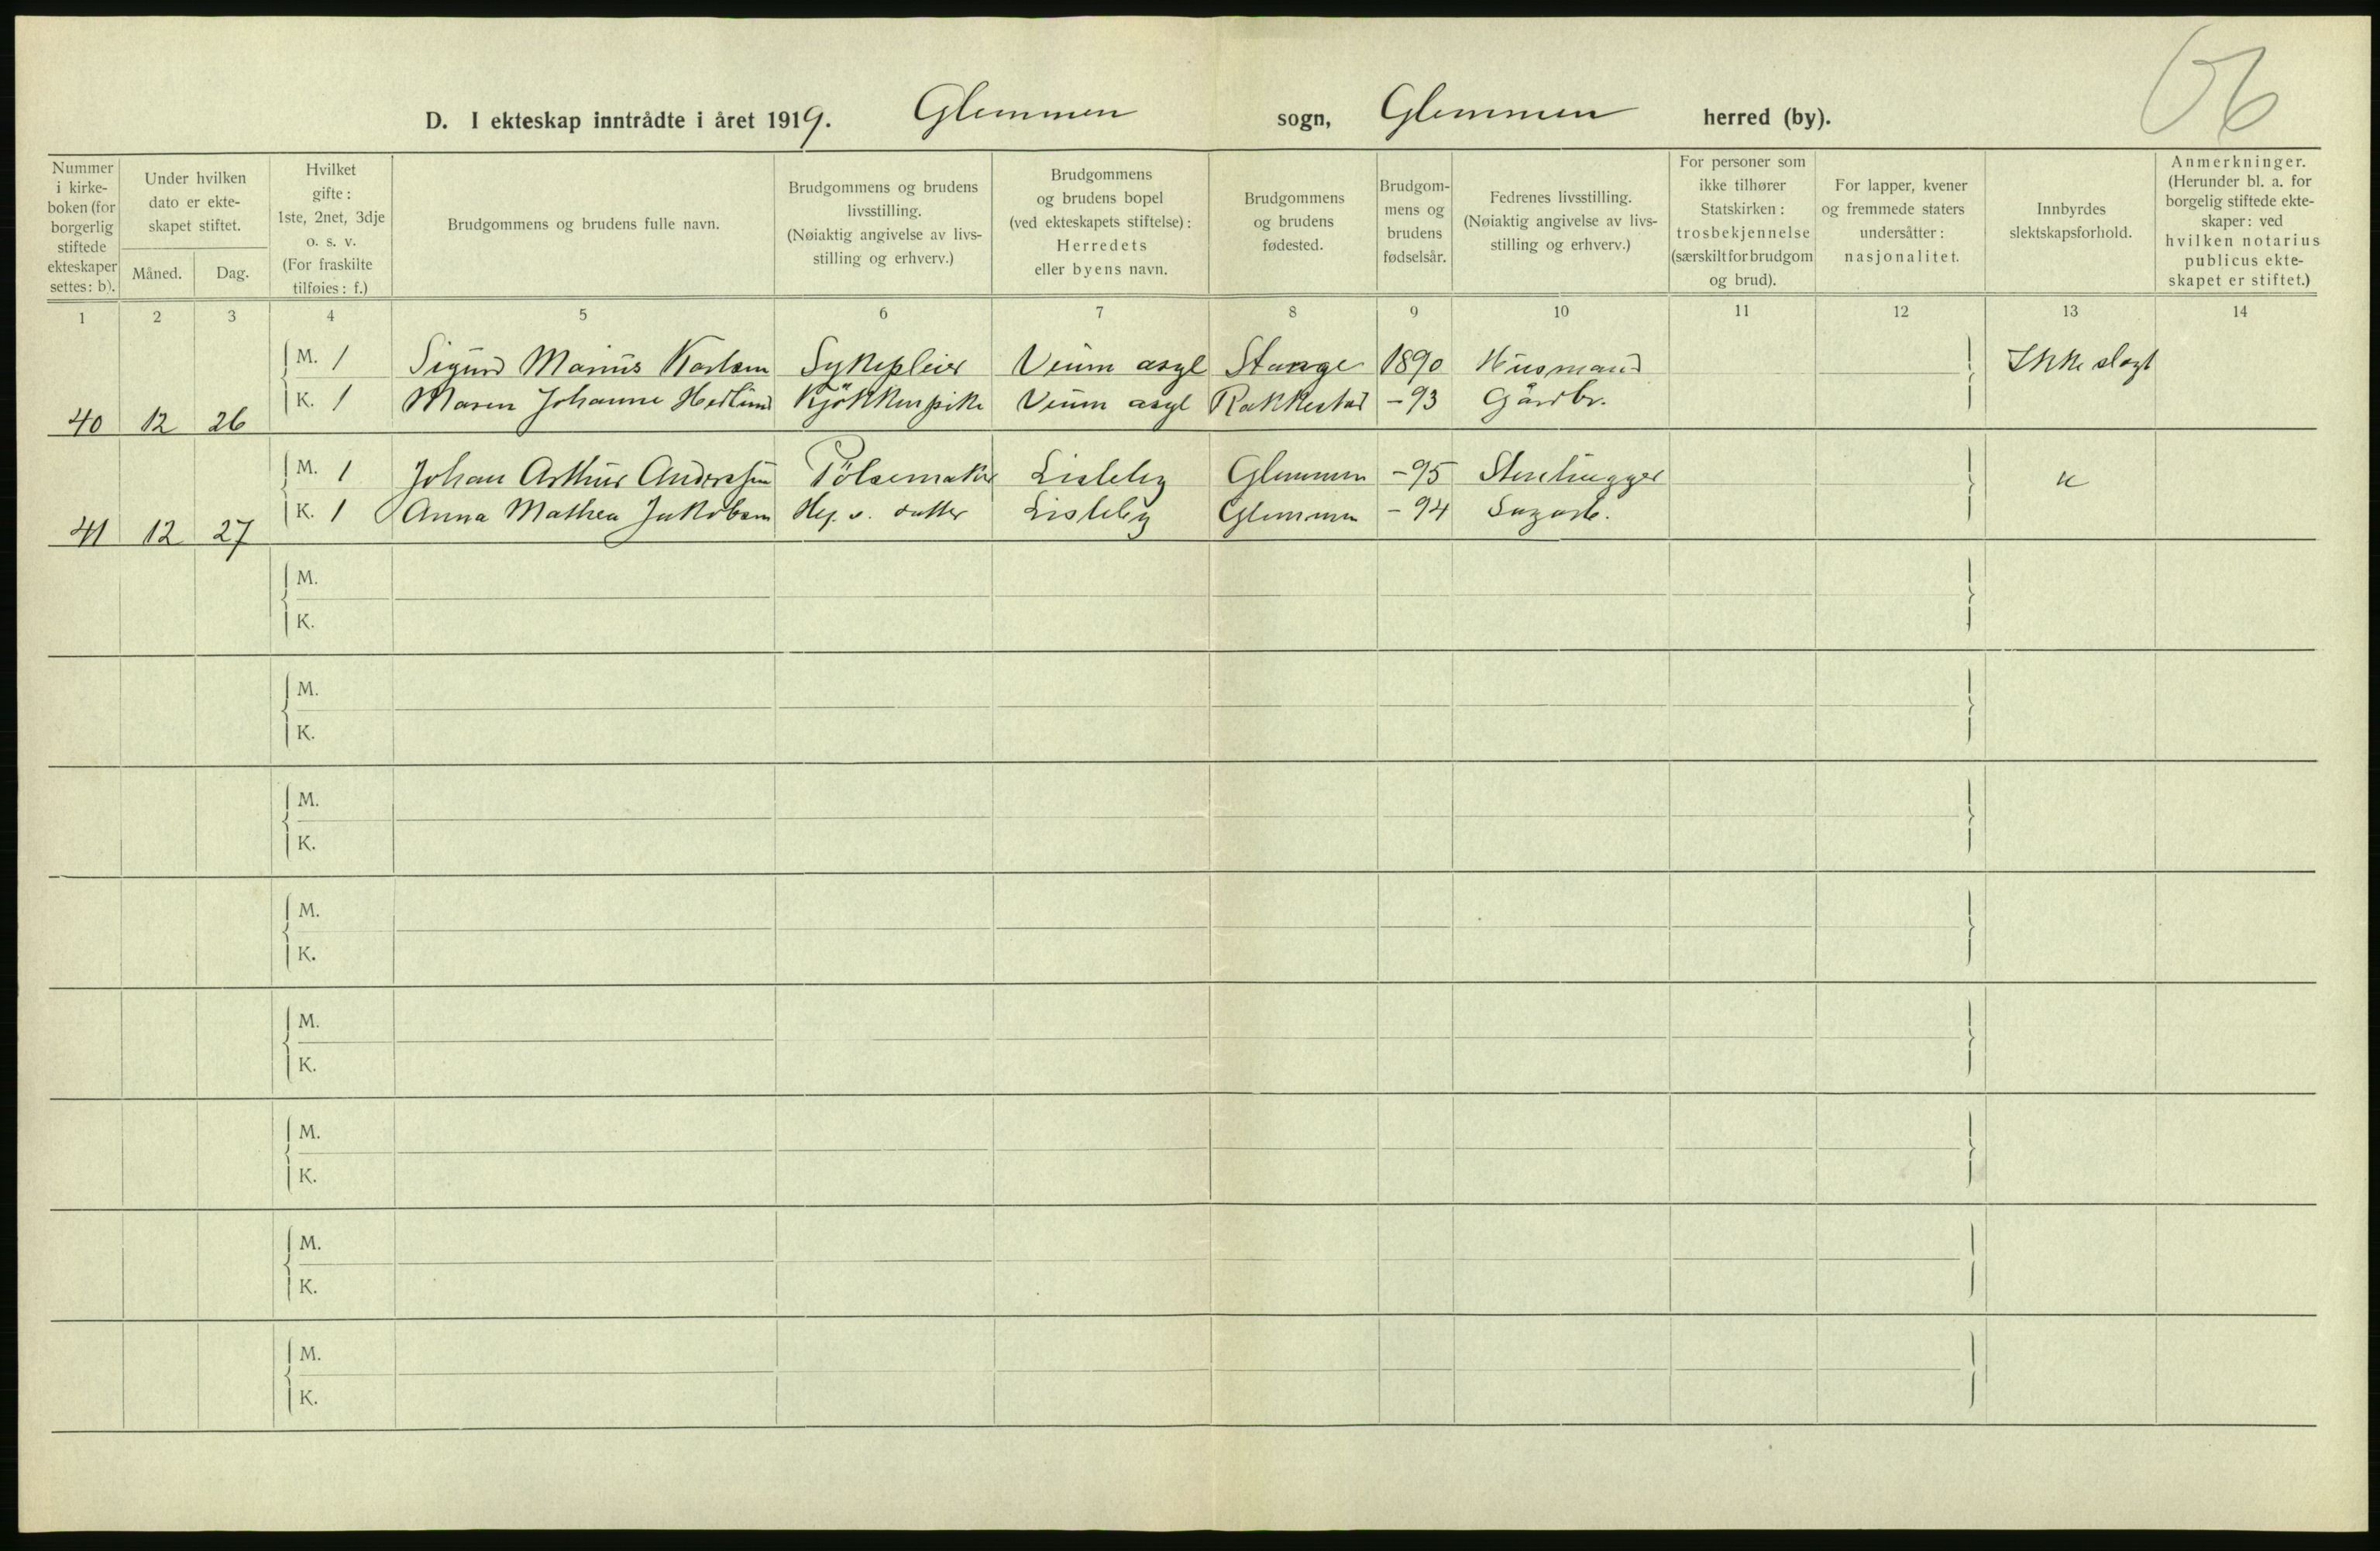 56
D. I ekteskap inntrådte i året 1919. Glemmen sogn, Glemmen herred (by).
Nummer i kirkeboken (for borgerlig stiftede ekteskaper settes: b).
Under hvilken dato er ekteskapet stiftet.
Måned. Dag.
Hvilket gifte: 1ste, 2net, 3dje o. s. v. (For fraskilte tilføies: f.)
Brudgommens og brudens fulle navn.
Brudgommens og brudens livsstilling. (Nøiaktig angivelse av livsstilling og erhverv.)
Brudgommens og brudens bopel (ved ekteskapets stiftelse): Herredets eller byens navn.
Brudgommens og brudens fødested.
Brudgommens og brudens fødselsår.
Fedrenes livsstilling. (Nøiaktig angivelse av livsstilling og erhverv.)
For personer som ikke tilhører Statskirken: trosbekjennelse (særskilt for brudgom og brud).
For lapper, kvener og fremmede staters undersåtter: nasjonalitet.
Innbyrdes slektskapsforhold.
Anmerkninger. (Herunder bl. a. for borgelig stiftede ekteskaper: ved hvilken notarius publicus ekteskapet er stiftet.)
1 2 3 4 5 6 7 8 9 10 11 12 13 14
M. 1 Sigurd Marius Karlsen Sykepleier Veum asyl Stange 1890 Husmand Ikke slegt
K. 1 Maren Johanne Hedlund Kjökkenpike Veum asyl Rakkestad -93 Gårdbr.
40 12 26
M. 1 Johan Arthur Anderssen Pölsemaker Lisleby Glemmen -95 Stenhugger "
K. 1 Anna Mathea Jakobsen Hej. v. datter Lisleby Glemmen -94 Sagarb.
41 12 27
M.
K.
M.
K.
M.
K.
M.
K.
M.
K.
M.
K.
M.
K.
M.
K.